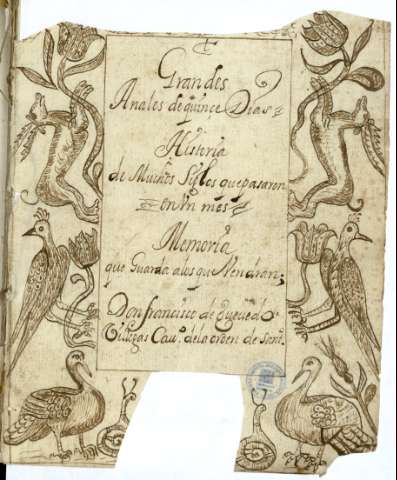 Grandes
Anales de quince Dias
Historia
de Muchos Siglos que pasaron
en Vn mes
Memoria
que Guarda a los que Vendran;
Don francisco de Queuedo
Villegas Cauº. de la orden de Santº.